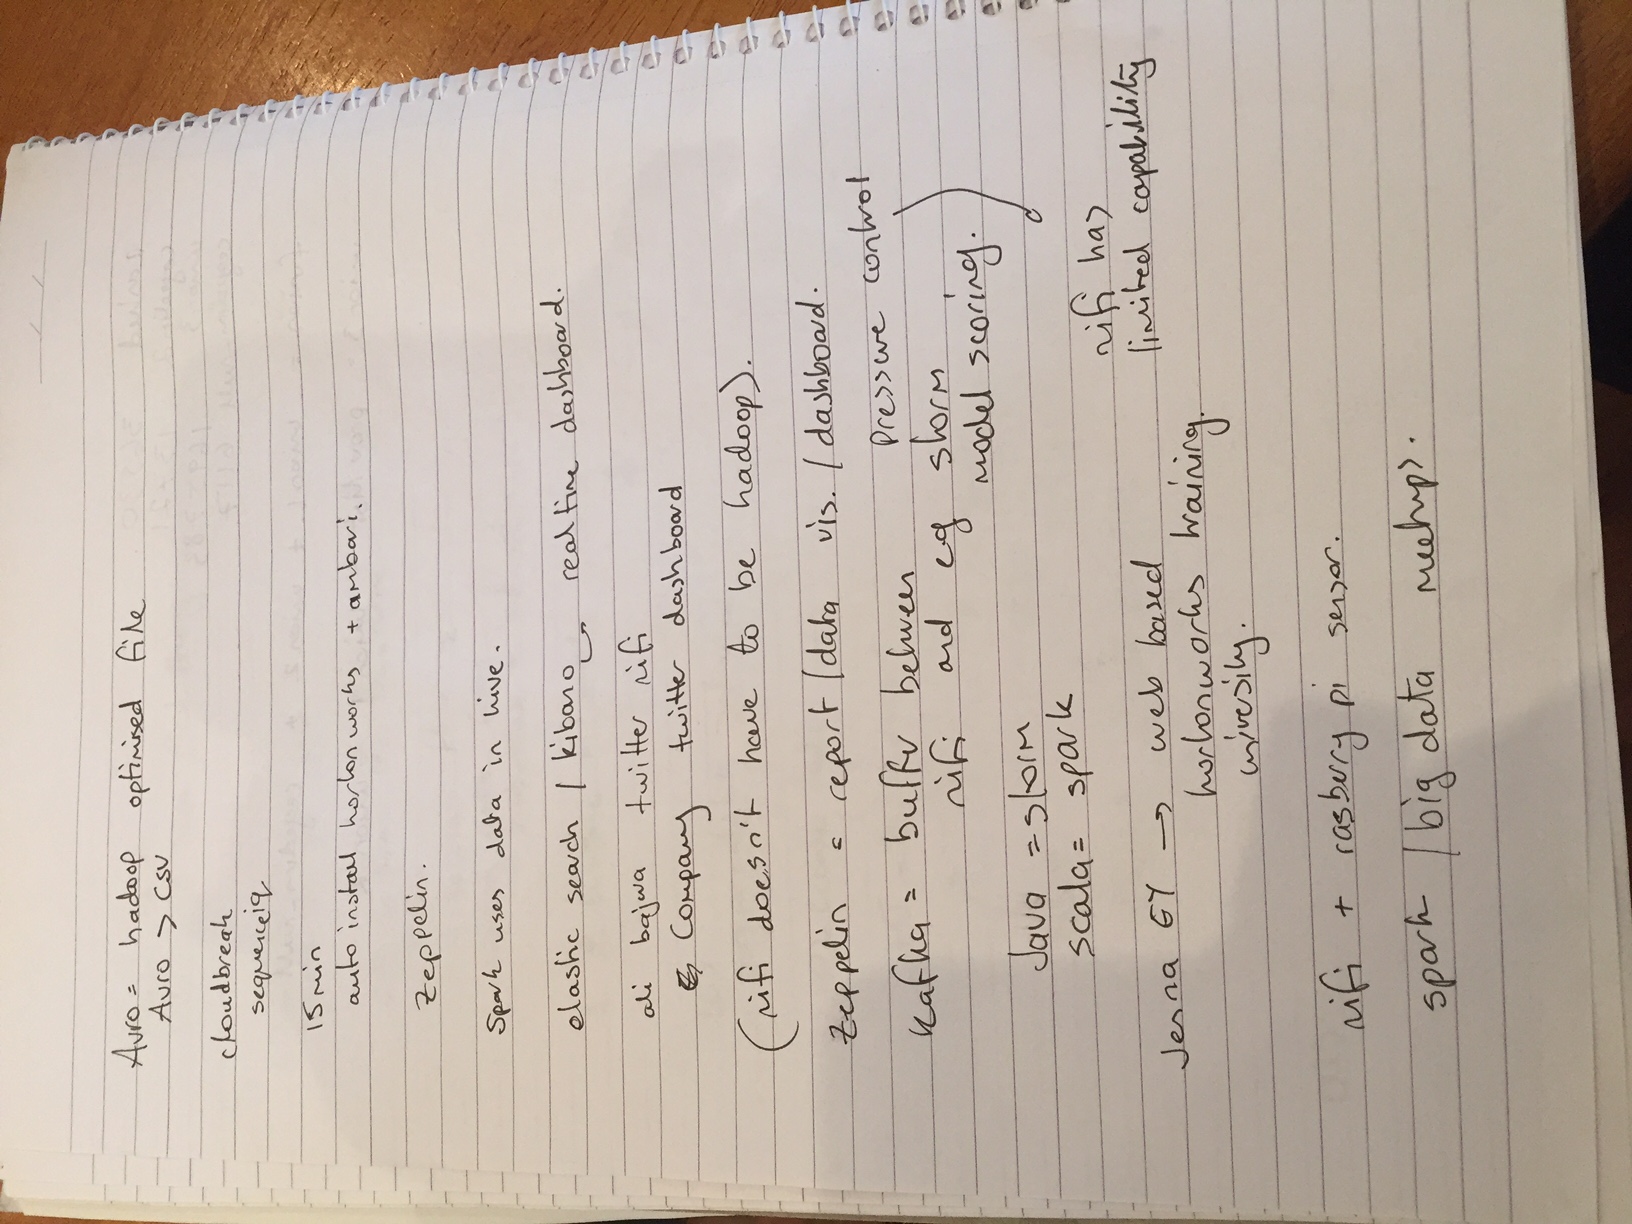 Avro = hadoop optimised file
Avro > CSV
cloudbreak
sequenceiq
15 min
auto install hortonworks + ambari.
Zeppelin.
Spark uses data in hive.
elastic search / kibana realtime dashboard.
ali bajwa twitter nifi
Company twitter dashboard
(nifi doesn't have to be hadoop).
Zeppelin = report / data vis. / dashboard.
pressure control
Kafka = buffer between
nifi and eg storm
model scoring.
Java = storm
scala = spark
nifi has
limited capability
Jenna EY → web based
hortonworks training.
university.
nifi + rasberry pi sensor.
spark / big data meetups.